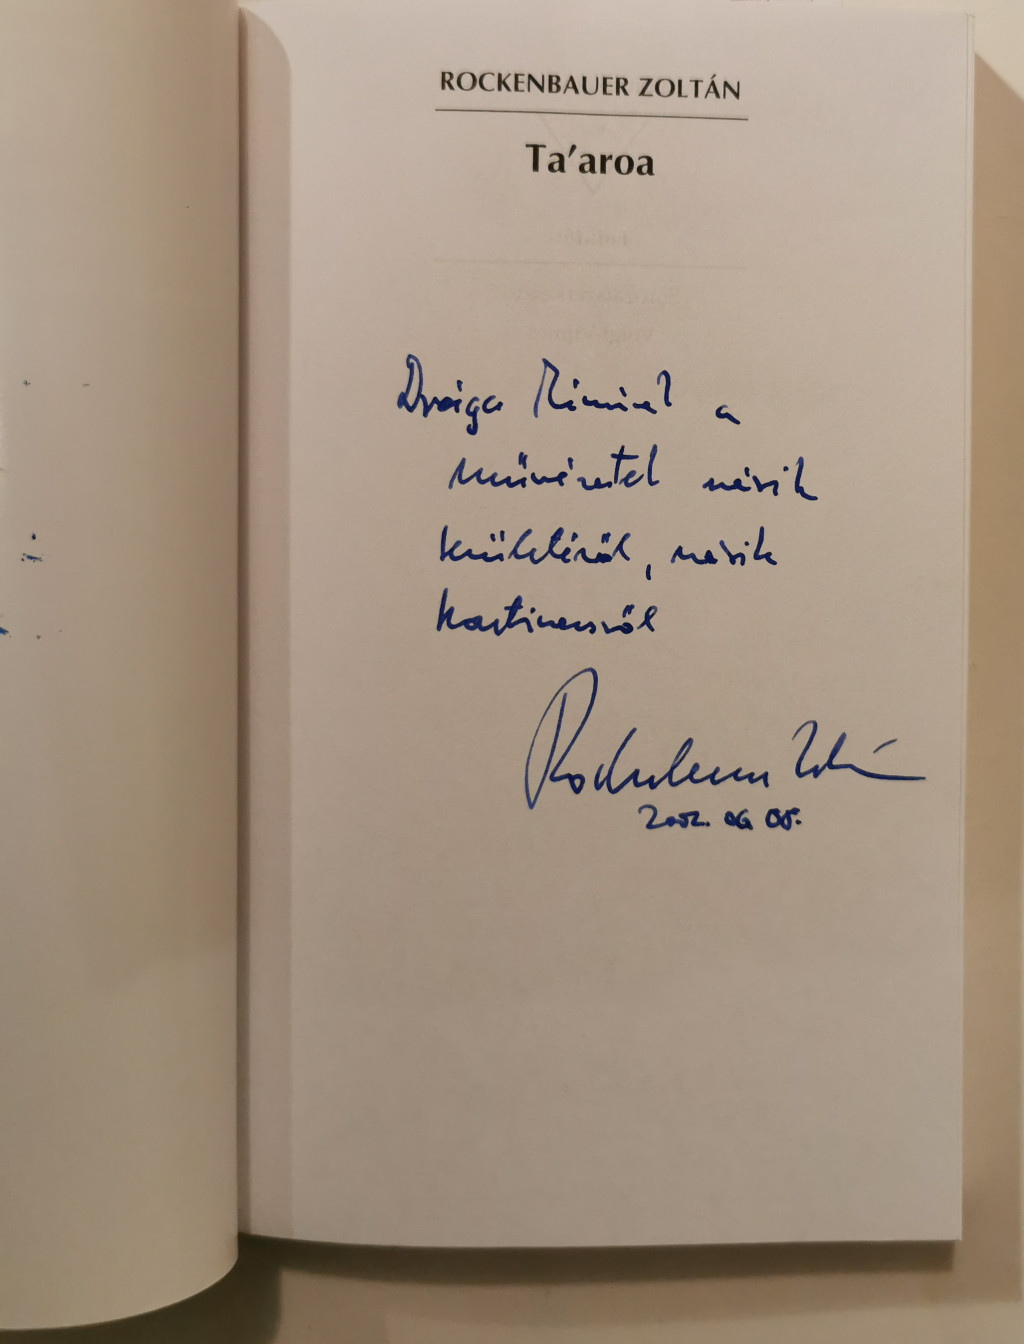 ROCKENBAUER ZOLTÁN
Ta'aroa
Drága Miminek a
művészetek másik
területéről, másik
kontinensről
Rockenbauer Zoltán
2002. 06 05.